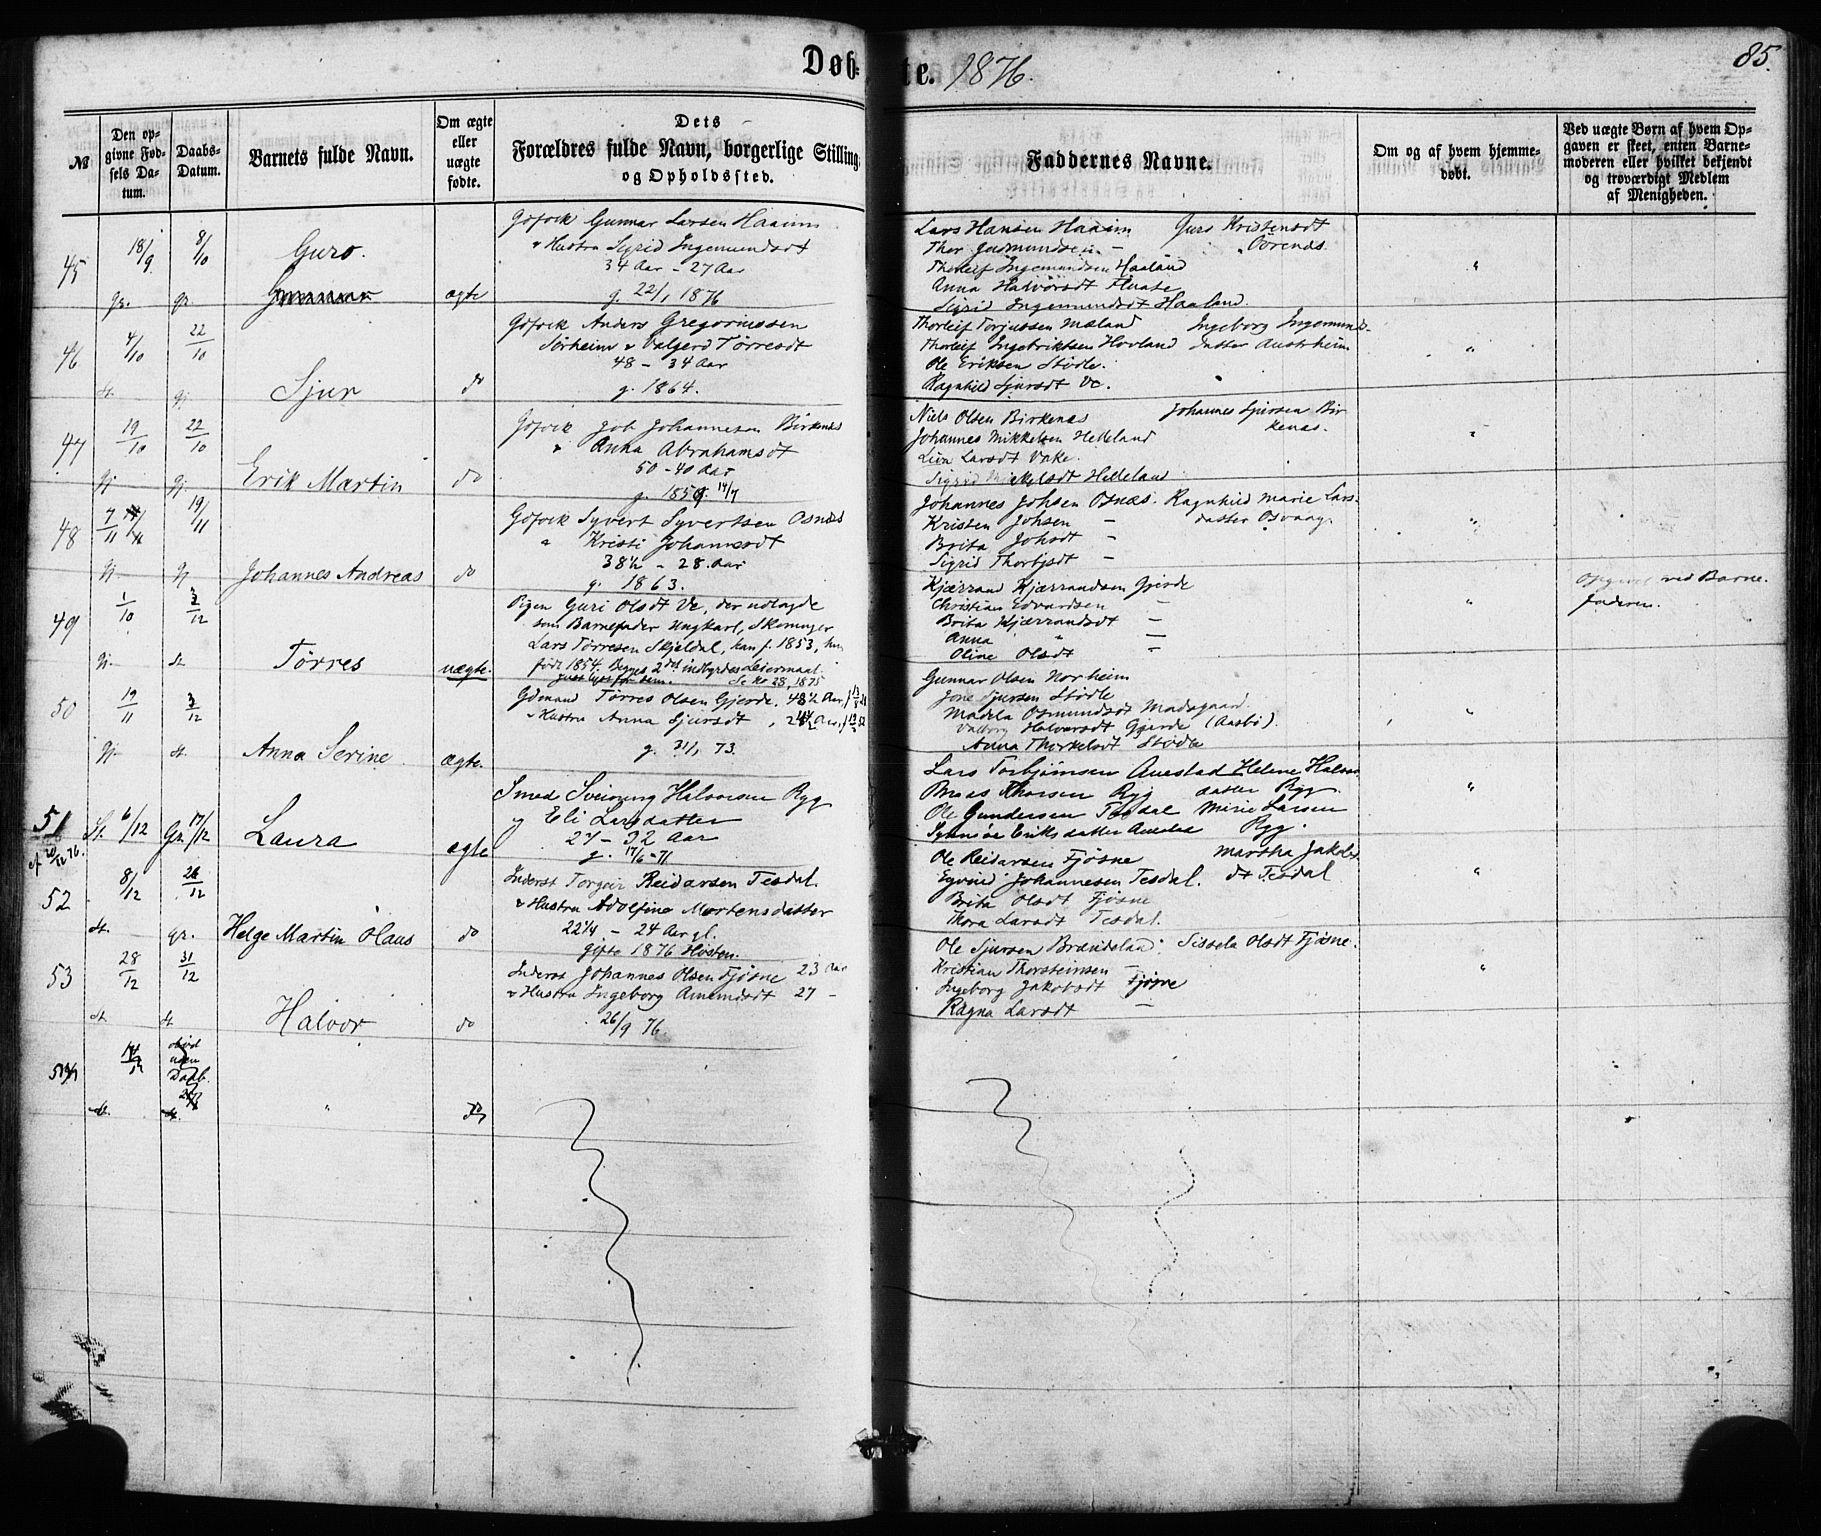 Døb-
te. 1876.
85.
№
Den op-
givne Fød-
sels Da-
tum.
Daabs-
Datum.
Barnets fulde Navn.
Om ægte
eller
uægte
fødte.
Dets
Forældres fulde Navn, borgerlige Stilling,
og Opholdssted.
Faddernes Navne.
Om og af hvem hjemme-
døbt.
Ved uægte Børn af hvem Op-
gaven er skeet, enten Barne-
moderen eller hvilket bekjendt
og troværdigt Medlem
af Menigheden.
45
18/9
8/10
Guro.
ægte
Gunnar Larsen Haaim
& Hustru Sigrid Ingemundsdt
34 Aar - 27 Aar
g. 22/1 1876
Lars Hansen Haaim Guro Kristensdt
Thor Gudmundsen - Børenæs
Thorleif Ingemundsen Haaland
Anna Halvorsdt Fluste
Sigrid Ingemundsdt Haaland.
46
4/10
22/10
Sjur
do
Anders Gregoriussen
Sørheim & Valgerd Tørresdt
48 - 34 Aar
g. 1864.
Thorleif Torjussen Mæland Ingeborg Ingemunds-
Thorleif Ingebriktsen Hovland datter Austrheim
Ole Eriksen Stødle.
Ragnhild Sjursdt Ve.
47
19/10
22/10
Erik Martin
do
Job Johannesen Birkenæs
& Anna Abrahamsdt
50 - 40 Aar
g. 1859. 14/7
Niels Olsen Birkenæs Johannes Sjursen Bir-
kenæs.
Johannes Mikkelsen Helleland
Larsdt Vake.
Helleland
48
7/11
19/11
Johannes Andreas
do
Syvert Syvertsen Osnæs
& Kristi Johannesdt
38½ - 28 Aar
g. 1863.
Johannes Johsen Osnæs. Ragnhild Marie Lars-
datter Osvaag.
Kristen Johsen -
Brita Johsdt -
Sigrid Thorbjsdt -
49
1/10
3/12
Tørres
uægte.
Pigen Guri Olsdt Ve, der udlagde
som Barnefader Ungkarl,
Lars Tørresen Skjeldal, han f. 1853, hun
født 1854. Begges 2det indbyrdes Leiermaal.
Se No 28, 1875
Kjærrand Kjærrandsen Gjerde
Christian Edvardsen -
Brita Kjærrandsdt -
Anna " -
Oline Olsdt -
Opgivet ved Barne-
faderen.
50
19/11
3/12
Anna Serine.
ægte.
Gdmand Tørres Olsen Gjerde, 48½ Aar,
& Hustru Anna Sjursdt,
g. 31/1 73.
Gunnar Olsen Norheim
Jone Sjursen Stødle
Madela Osmundsdt Madsgaard
Valborg Halvorsdt Gjerde (Aasbø).
Anna Thorkelsdt Stødle
51
6/12
17/12
Laura
ægte
Smed Sveinung Halvorsen Ryg
og Eli Larsdatter
27 - 32 Aar
g. 17/6 - 71
Lars Torbjørnsen Auestad Helene Halvors-
datter Ryg.
Ole Gundersen Tesdal Mirie Larsen
Ryg.
Synnøve Eriksdatter Auestad
52
8/12
26/12
Helge Martin Olaus
do
Inderst Torgeir Reidarsen Tesdal
& Hustru Adolfine Mortensdatter
22¼ - 24 Aar gl.
gifte 1876 Høsten.
Ole Reidarsen Fjøsne Martha Jakobs-
dt Tesdal
Eyvind Johannesen Tesdal.
Brita Olsdt Fjøsne
Thora Larsdt Tesdal.
53
28/12
31/12
Halvor
do
Inderst Johannes Olsen Fjøsne 23 Aar
& Hustru Ingeborg Amundsdt 27 -
26/9 76.
Ole Sjursen Brandeland. Sissela Olsdt Fjøsne.
Kristian Thorsteinsen -
Ingeborg Jakobsdt Fjøsne
Ragna Larsdt -